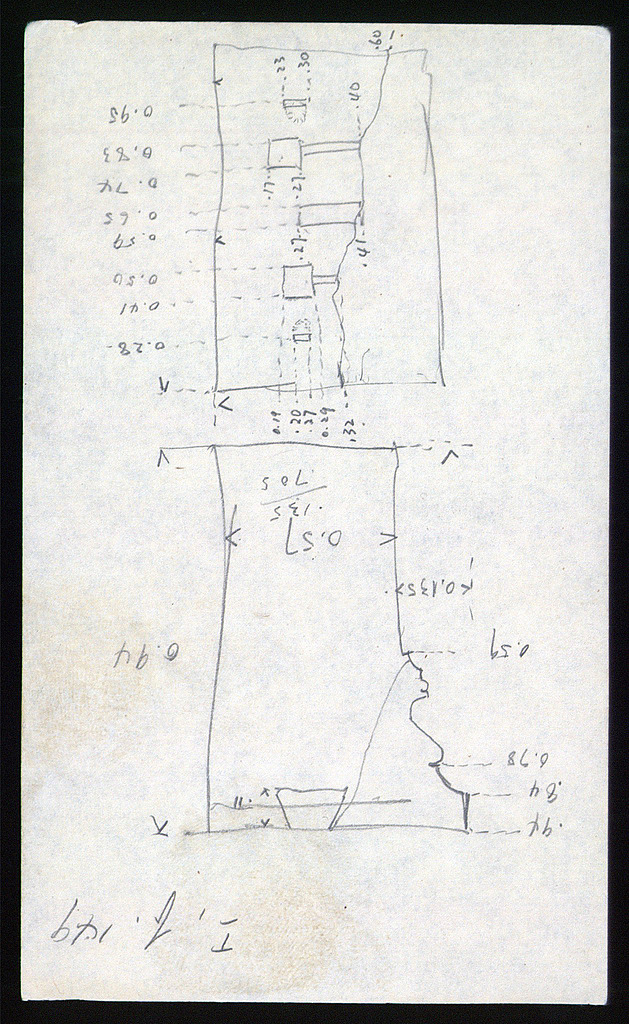 .94
.84
0.78
.11
0.94
0.59
<0.135>
0.57
.135
705
.32
0.29
.27
.20
0.19
0.28
0.41
0.50
0.59
0.65
0.74
0.83
0.95
.41
.27
.27
.17
.40
.30
.23
.60